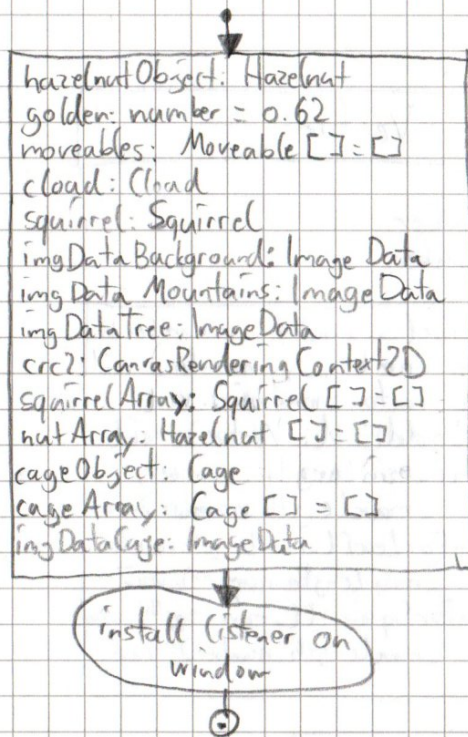 hazelnutObject: Hazelnut
golden: number = 0.62
moveables: Moveable [] = []
cloud: Cloud
squirrel: Squirrel
imgDataBackground: ImageData
imgDataMountains: ImageData
imgDataTree: ImageData
crc2: CanvasRenderingContext2D
squirrelArray: Squirrel [] = []
nutArray: Hazelnut [] = []
cageObject: Cage
cageArray: Cage [] = []
imgDataCage: ImageData
install listener on
window